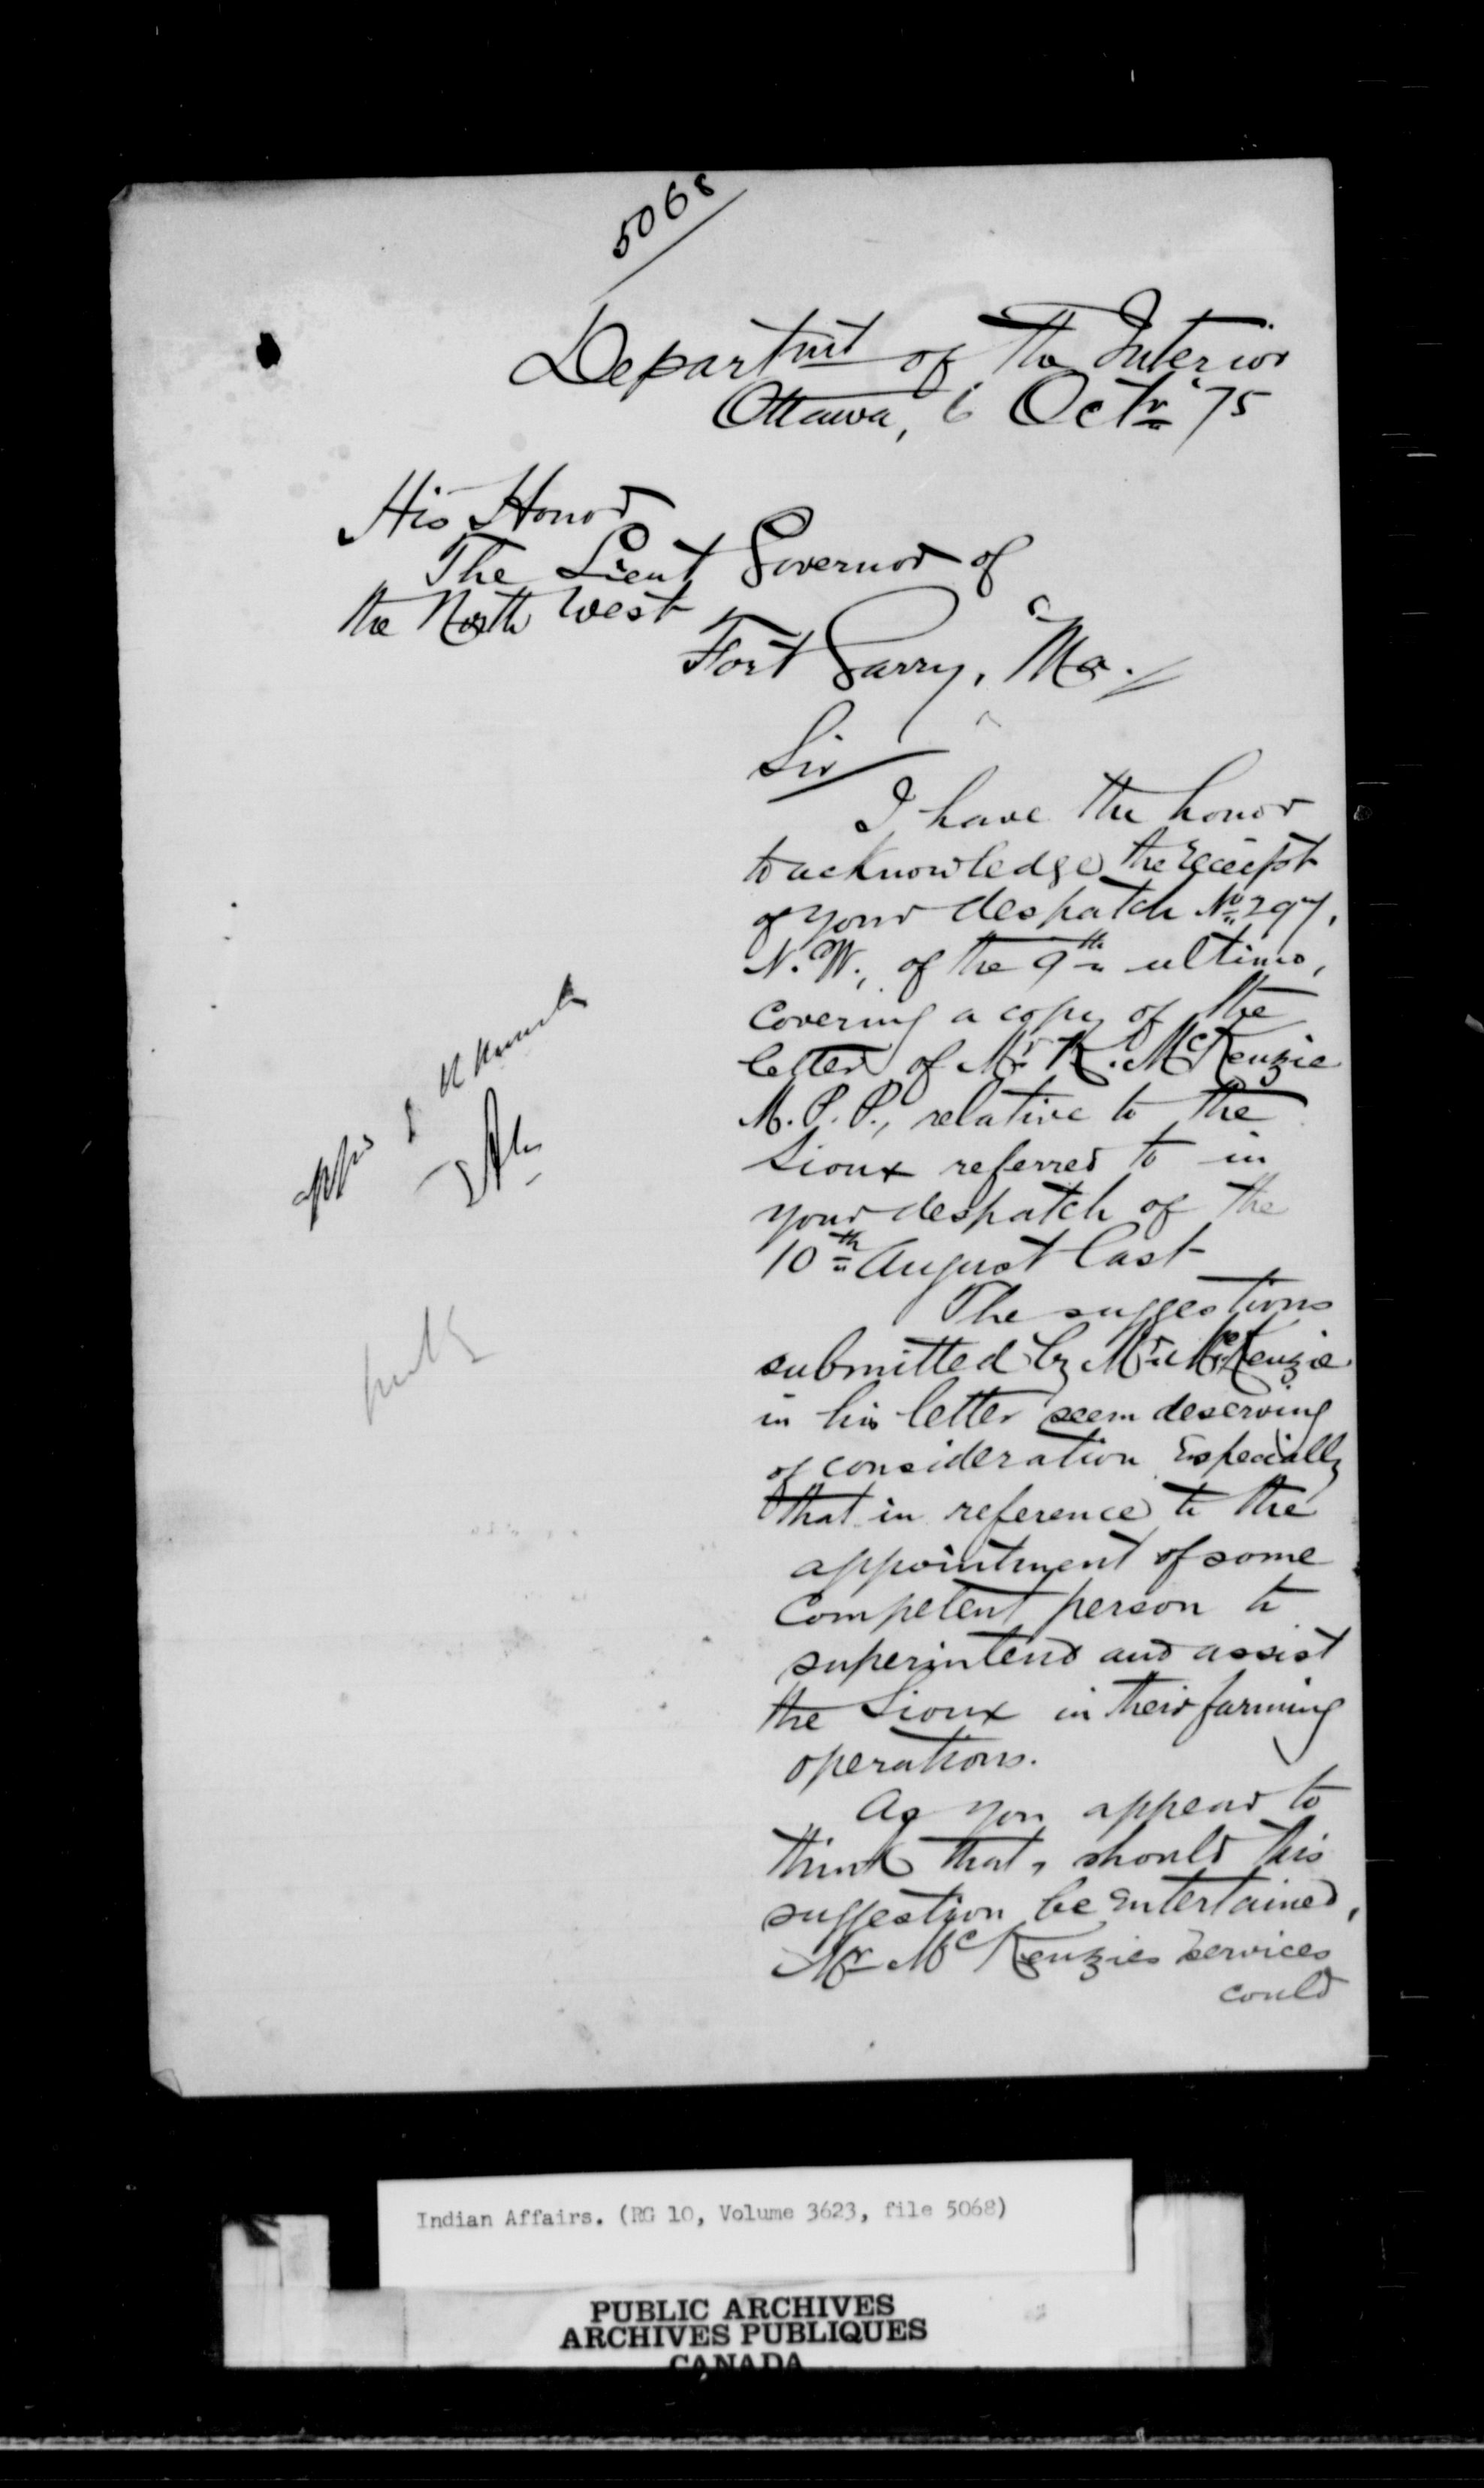 5068
Departmt of the Interior
Ottawa, 6 Octr '75
His Honor
The Lieut Governor of
the North West
Fort Garry, Ma.
Sir
I have the honor
to acknowledge the receipt
of your despatch No 297,
N.W., of the 9th ultimo,
covering a copy of the
letter of Mr K. McKenzie
M.P.P., relative to the
Sioux referred to in
your despatch of the
10th August last
The suggestions
submitted by Mr McKenzie
in his letter seem deserving
of consideration Especially
that in reference to the
appointment of some
Competent person to
superintend and assist
the Sioux in their farming
operations.
As you appear to
think that, should this
suggestion be entertained,
Mr McKenzies services
could
Indian Affairs. (RG 10, Volume 3623, file 5068)
PUBLIC ARCHIVES
ARCHIVES PUBLIQUES
CANADA